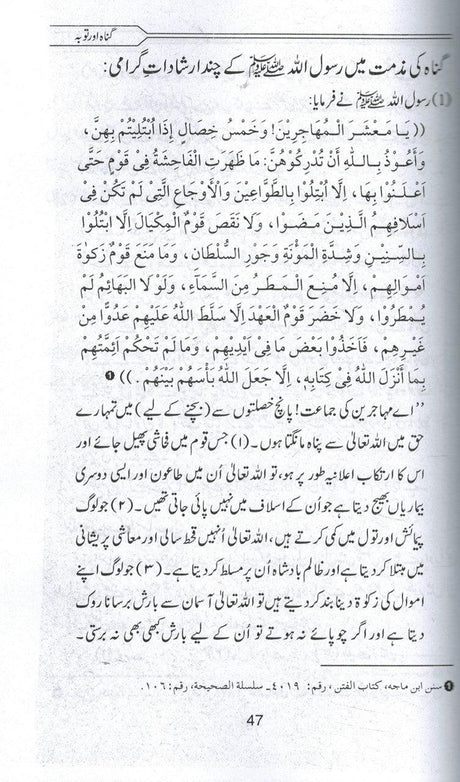 گناہ اور توبہ
گناہ کی مذمت میں رسول اللہ ﷺ کے چند ارشاداتِ گرامی:
(1) رسول اللہ ﷺ نے فرمایا:
(( يَا مَعْشَرَ الْمُهَاجِرِيْنَ! وَخَمْسُ خِصَالٍ إِذَا ابْتُلِيْتُمْ بِهِنَّ،
وَأَعُوْذُ بِاللهِ أَنْ تُدْرِكُوْهُنَّ: مَا ظَهَرَتِ الْفَاحِشَةُ فِيْ قَوْمٍ حَتّٰى
اَعْلَنُوْا بِهَا، اِلَّا ابْتُلُوْا بِالطَّوَاعِيْنَ وَالْأَوْجَاعِ الَّتِيْ لَمْ تَكُنْ فِيْ
اَسْلَافِهِمُ الَّذِيْنَ مَضَوْا، وَلَا نَقَصَ قَوْمٌ الْمِكْيَالَ اِلَّا ابْتُلُوْا
بِالسِّنِيْنَ وَشِدَّةِ الْمَؤُنَةِ وَجَوْرِ السُّلْطَانِ، وَمَا مَنَعَ قَوْمٌ زَكوٰةَ
اَمْوَالِهِمْ، اِلَّا مُنِعَ الْمَطَرُ مِنَ السَّمَآءِ، وَلَوْ لَا الْبَهَائِمُ لَمْ
يُمْطَرُوْا، وَلَا خَضَرَ قَوْمٌ الْعَهْدَ اِلَّا سَلَّطَ اللهُ عَلَيْهِمْ عَدُوًّا مِنْ
غَيْرِهِمْ، فَاَخَذُوْا بَعْضَ مَا فِيْ اَيْدِيْهِمْ، وَمَا لَمْ تَحْكُمْ اَئِمَّتُهُمْ
بِمَا أَنْزَلَ اللهُ فِيْ كِتَابِهِ، اِلَّا جَعَلَ اللهُ بَأْسَهُمْ بَيْنَهُمْ.)) ❶
’’اے مہاجرین کی جماعت! پانچ خصلتوں سے (بچنے کے لیے) میں تمہارے
حق میں اللہ تعالیٰ سے پناہ مانگتا ہوں۔ (۱) جس قوم میں فحاشی پھیل جائے اور
اس کا ارتکاب اعلانیہ طور پر ہو، تو اللہ تعالیٰ اُن میں طاعون اور ایسی دوسری
بیماریاں بھیج دیتا ہے جو اُن کے اسلاف میں نہیں پائی جاتی تھیں۔ (۲) جو لوگ
پیمائش اور تول میں کمی کرتے ہیں، اللہ تعالیٰ اُنہیں قحط سالی اور معاشی پریشانی
میں مبتلا کر دیتا ہے اور ظالم بادشاہ اُن پر مسلط کر دیتا ہے۔ (۳) جو لوگ اپنے
اموال کی زکوٰۃ دینا بند کر دیتے ہیں تو اللہ تعالیٰ آسمان سے بارش برسانا روک
دیتا ہے اور اگر چوپائے نہ ہوتے تو اُن کے لیے بارش کبھی بھی نہ برستی۔
❶ سنن ابن ماجه، كتاب الفتن، رقم: ٤٠١٩۔ سلسلة الصحيحة، رقم: ١٠٦.
47